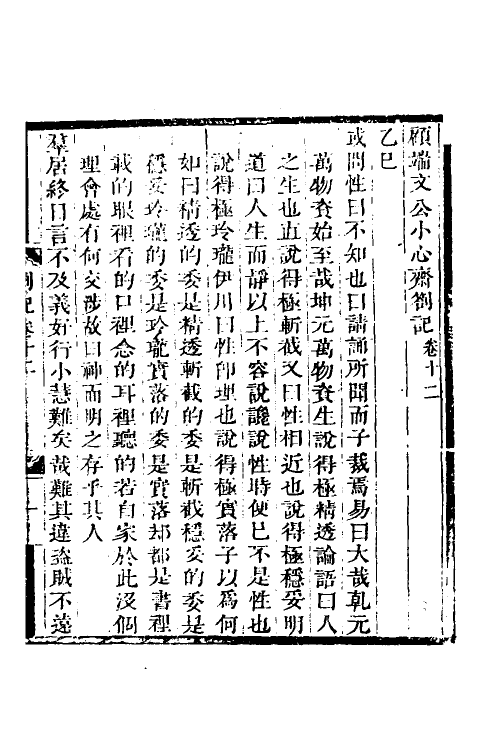 顧端文公小心齋劄記卷十二
乙巳
或問性曰不知也曰請誦所聞而子裁焉易曰大哉乾元
萬物資始至哉坤元萬物資生說得極精透論語曰人
之生也直說得極斬截又曰性相近也說得極穩妥明
道曰人生而靜以上不容說纔說性時便已不是性也
說得極玲瓏伊川曰性卽理也說得極實落子以爲何
如曰精透的委是精透斬截的委是斬截穩妥的委是
穩妥玲瓏的委是玲瓏實落的委是實落却都是書裡
載的眼裡看的口裡念的耳裡聽的若自家於此沒個
理會處有何交涉故曰神而明之存乎其人
羣居終日言不及義好行小慧難矣哉難其違盜賊不遠
劄記卷十二
一